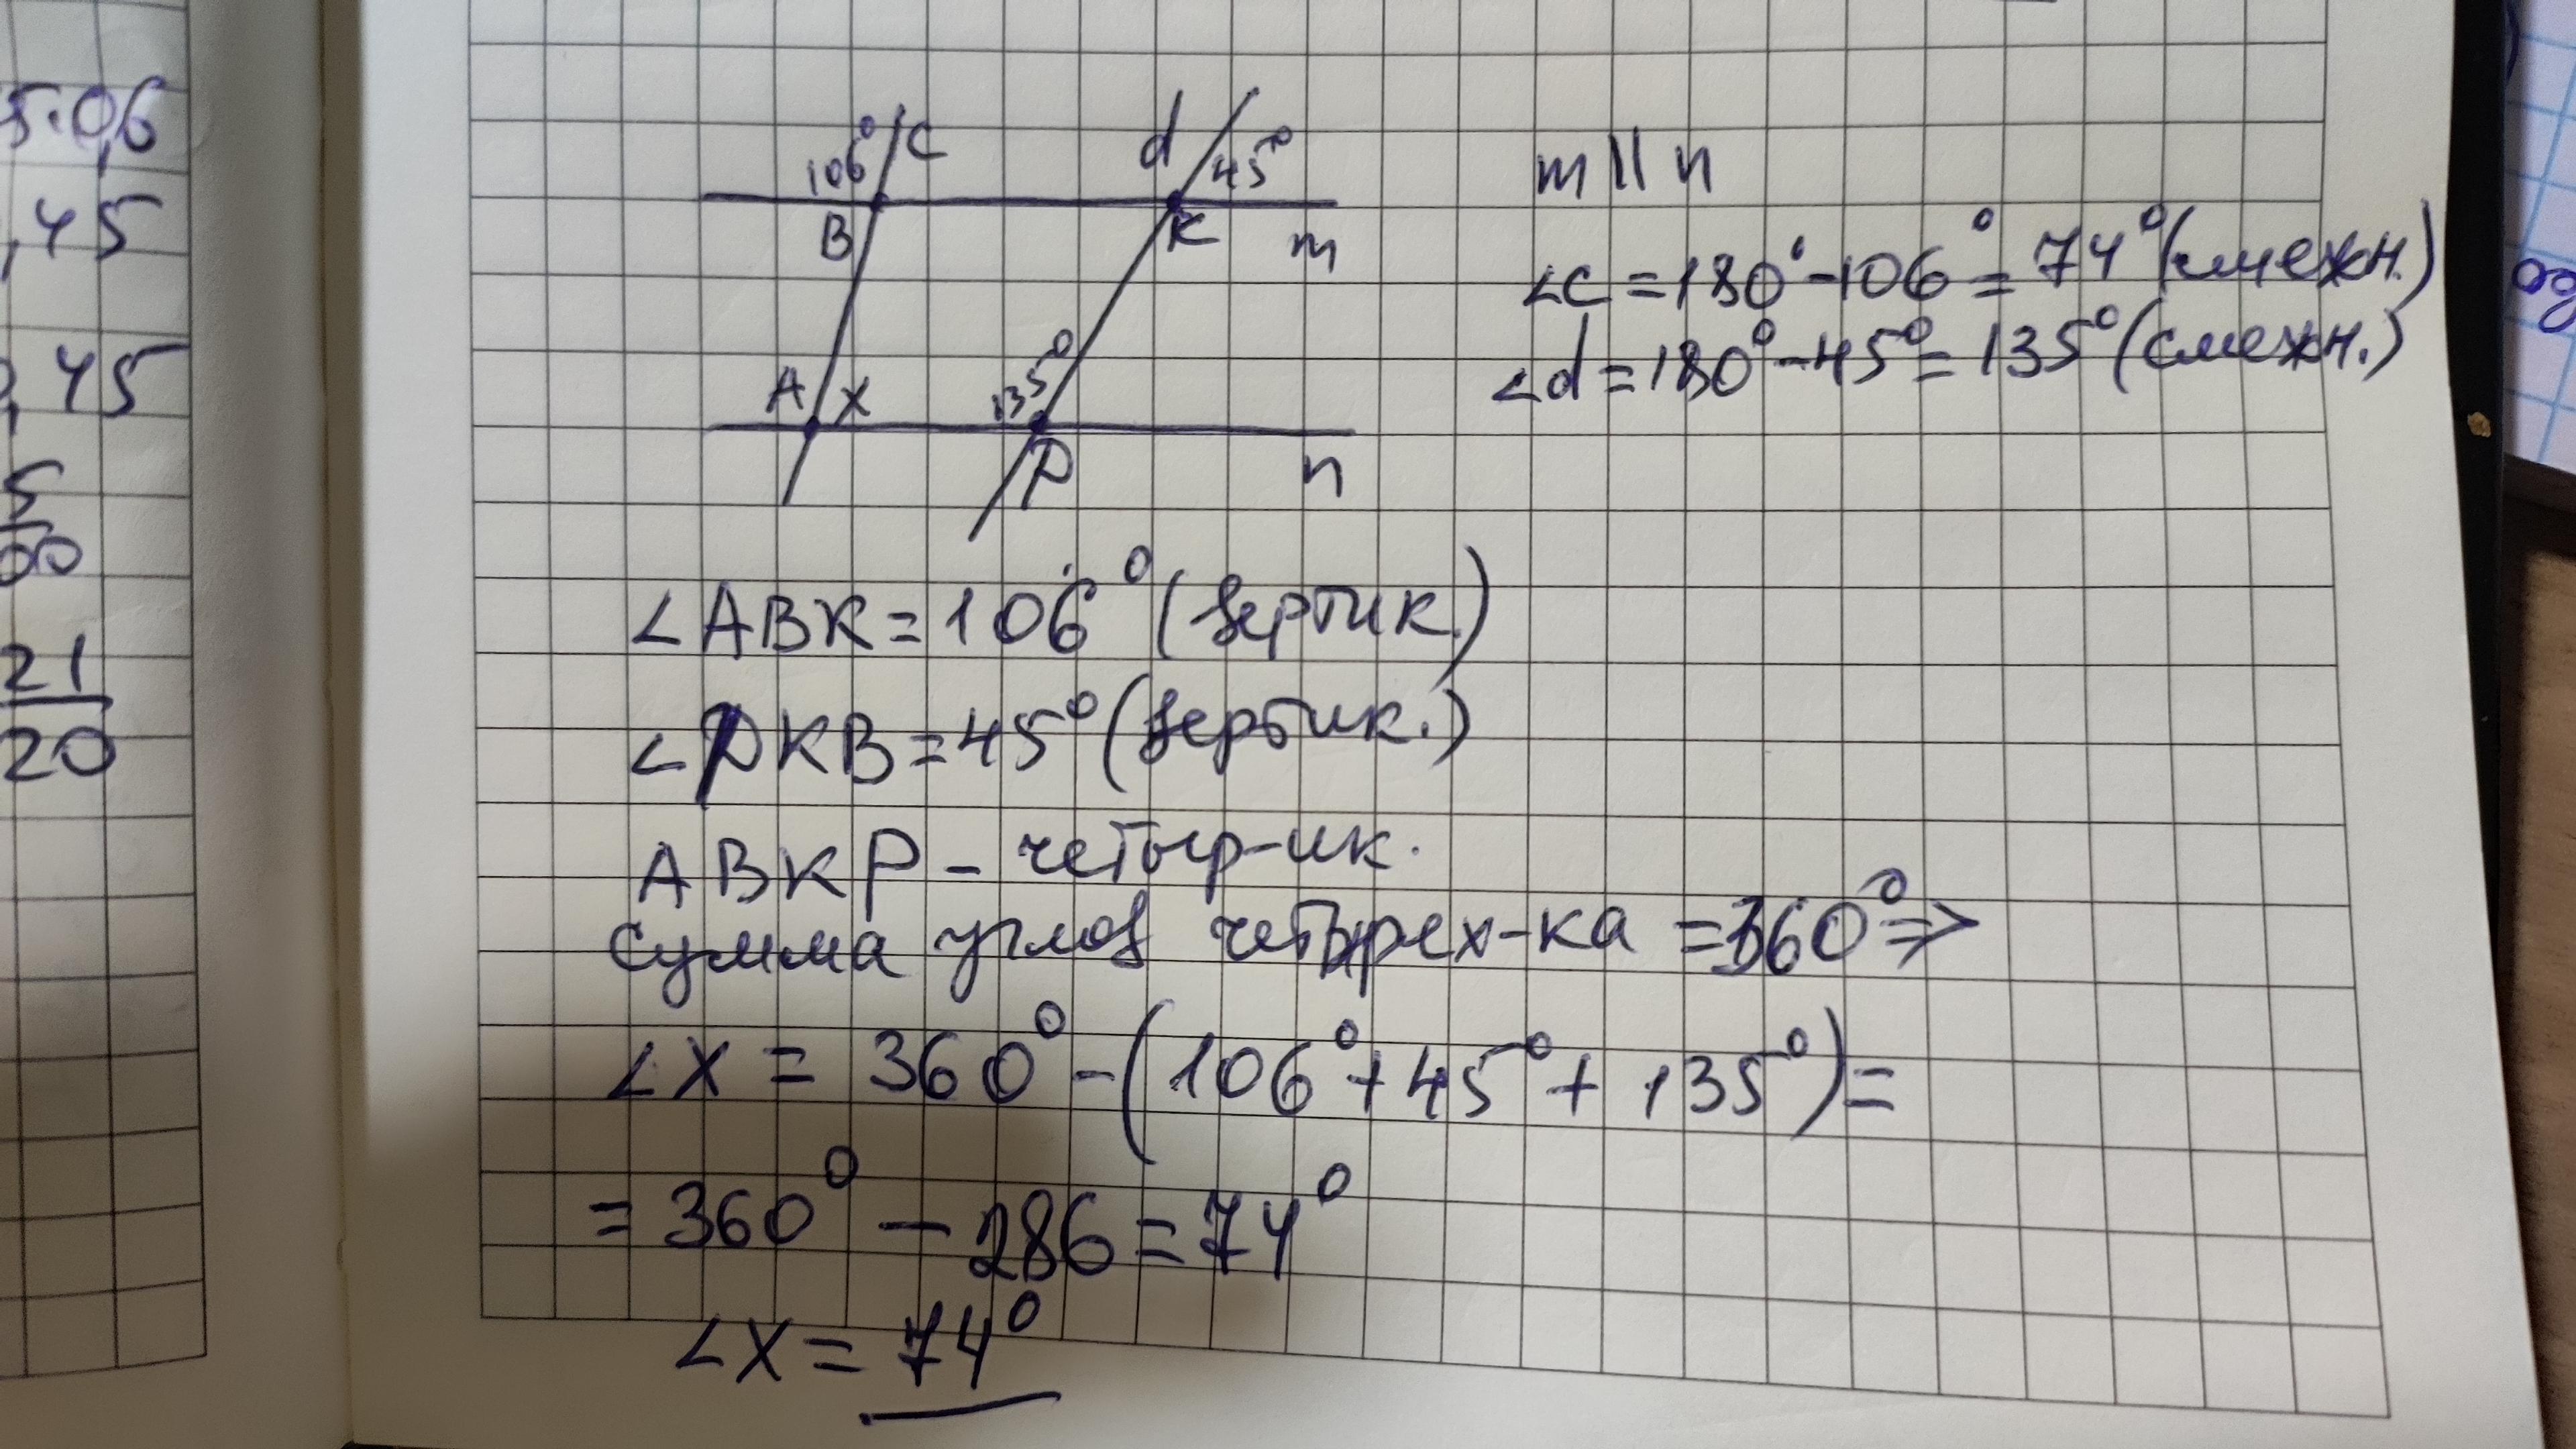 5·0,6
,45
0,45
5
00
21
20
106° C
d 45°
B K m
A x 135°
P n
m || n
∠C = 180° - 106° = 74° (смежн.)
∠d = 180° - 45° = 135° (смежн.)
∠ABK = 106° (вертик.)
∠PKB = 45° (вертик.)
ABKP - четыр-ик.
сумма углов четырех-ка = 360° ⇒
∠X = 360° - (106° + 45° + 135°) =
= 360° - 286 = 74°
∠X = 74°